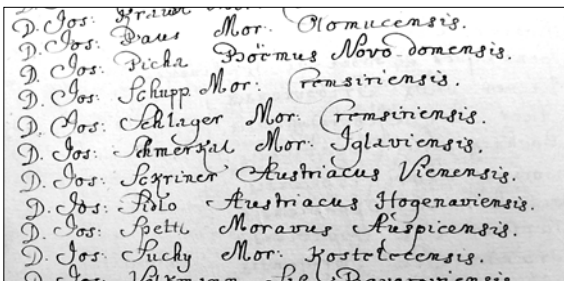 D. Jos: Kraus
D. Jos: Paus Mor: Olomucensis.
D. Jos: Picha Boëmus Novo domensis.
D. Jos: Schupp Mor: Cremsiriensis.
D. Jos: Schlager Mor: Cremsiriensis.
D. Jos: Schmerkal Mor: Iglaviensis.
D. Jos: Sckriner Austriacus Vienensis.
D. Jos: Austriacus Hogenaviensis.
D. Jos: Spetti Moravus Auspicensis.
D. Jos: Suchy Mor: Kosteletensis.
D. Jos: Volkmann